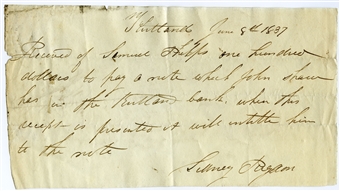 Rutland June 8th 1837
Received of Samuel Phelps one hundred
dollars to pay a note which John
has in the Rutland bank, when this
recept is presented it will intitle him
to the note
Sidney